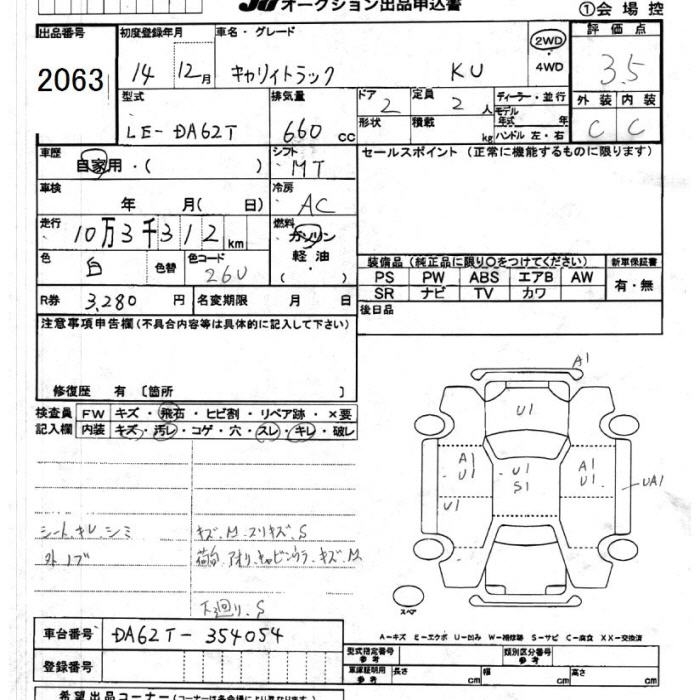 オークション出品申込書
①会場控
出品番号 2063
初度登録年月 14 12月
車名・グレード キャリィトラック KU
2WD・4WD
評価点 3.5
型式 LE-DA62T
排気量 660 cc
ドア 2 定員 2人
形状 積載 kg
ディーラー・並行
モデル年式 年
ハンドル 左・右
外装 内装
C C
車歴 自家用・( )
シフト MT
セールスポイント (正常に機能するものに限ります)
車検 年 月( 日)
冷房 AC
走行 10万3千312 km
燃料 ガソリン 軽油・( )
色 白 色替 色コード 26U
装備品 (純正品に限り○をつけてください) 新車保証書
PS PW ABS エアB AW 有・無
SR ナビ TV カワ
R券 3,280 円 名変期限 月 日
後日品
注意事項申告欄 (不具合内容等は具体的に記入して下さい)
修復歴 有 〔箇所 〕
検査員 FW キズ・飛石・ヒビ割・リペア跡・×要
記入欄 内装 キズ・汚レ・コゲ・穴・スレ・キレ・破レ
A1
U1
A1 U1 A1
U1 S1 U1 UA1
U1
シート、キレ、シミ キズ、M、スリキズ、S
外ノブ 荷台、アオリ、キャビンウラ、キズ、M
下廻り、S
スペア
車台番号 DA62T-354054
A-キズ E-エクボ U-凹み W-補修跡 S-サビ C-腐食 XX-交換済
登録番号
型式指定番号 参考 類別区分番号 参考
車庫証明用 参考 長さ cm 幅 cm 高さ cm
希望出品コーナー